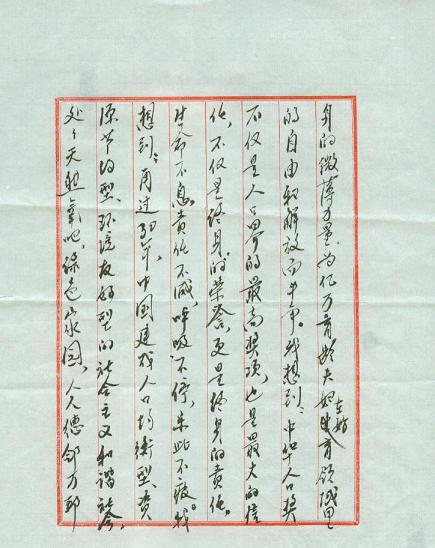 身的微薄力量，为亿万育龄夫妇在婚育领域里
的自由和解放而斗争。我想到：中华人口奖
不仅是人口界的最高奖项，也是最大的信
任，不仅是终身的荣誉，更是终身的责任。
生命不息，责任不减，呼吸不停，朱此不疲。我
想到：再过30年，中国建成人口均衡型、资
源节约型、环境友好型的社会主义和谐社会，
处处天然氧吧，绿色家园，人人德邻万邦